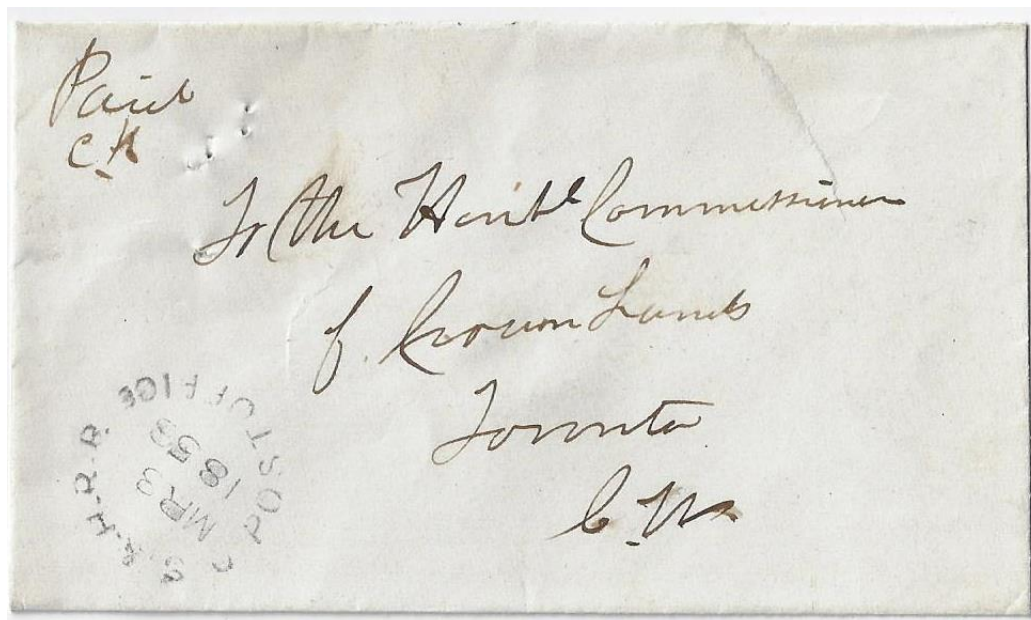 Paid
C.H
To the Honbl Commissioner
of Crown Lands
Toronto
C.W.
POST OFFICE
MR 3
1858